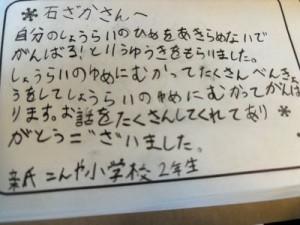 ＊石ざかさんへ
自分のしょうらいのひめをあきらめないで
がんばろ！というゆうきをもらりました。
しょうらいのゆめにむかってたくさんべんき
ょうをしてしょうらいのゆめにむかってがんば
ります。お話をたくさんしてくれてあり＊
がとうございました。
こんや小学校2年生